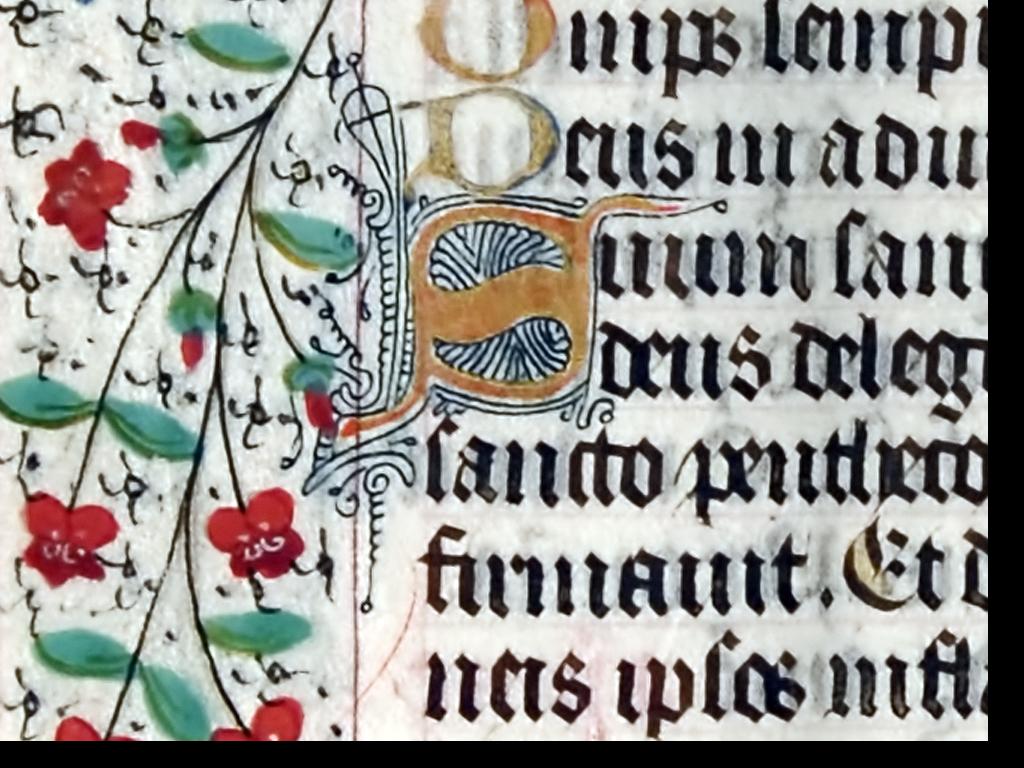 Omps semp
Deus in adiu
Sum san
deus deleg
sancto pentheco
firmauit. Et d
neis ipsos infla